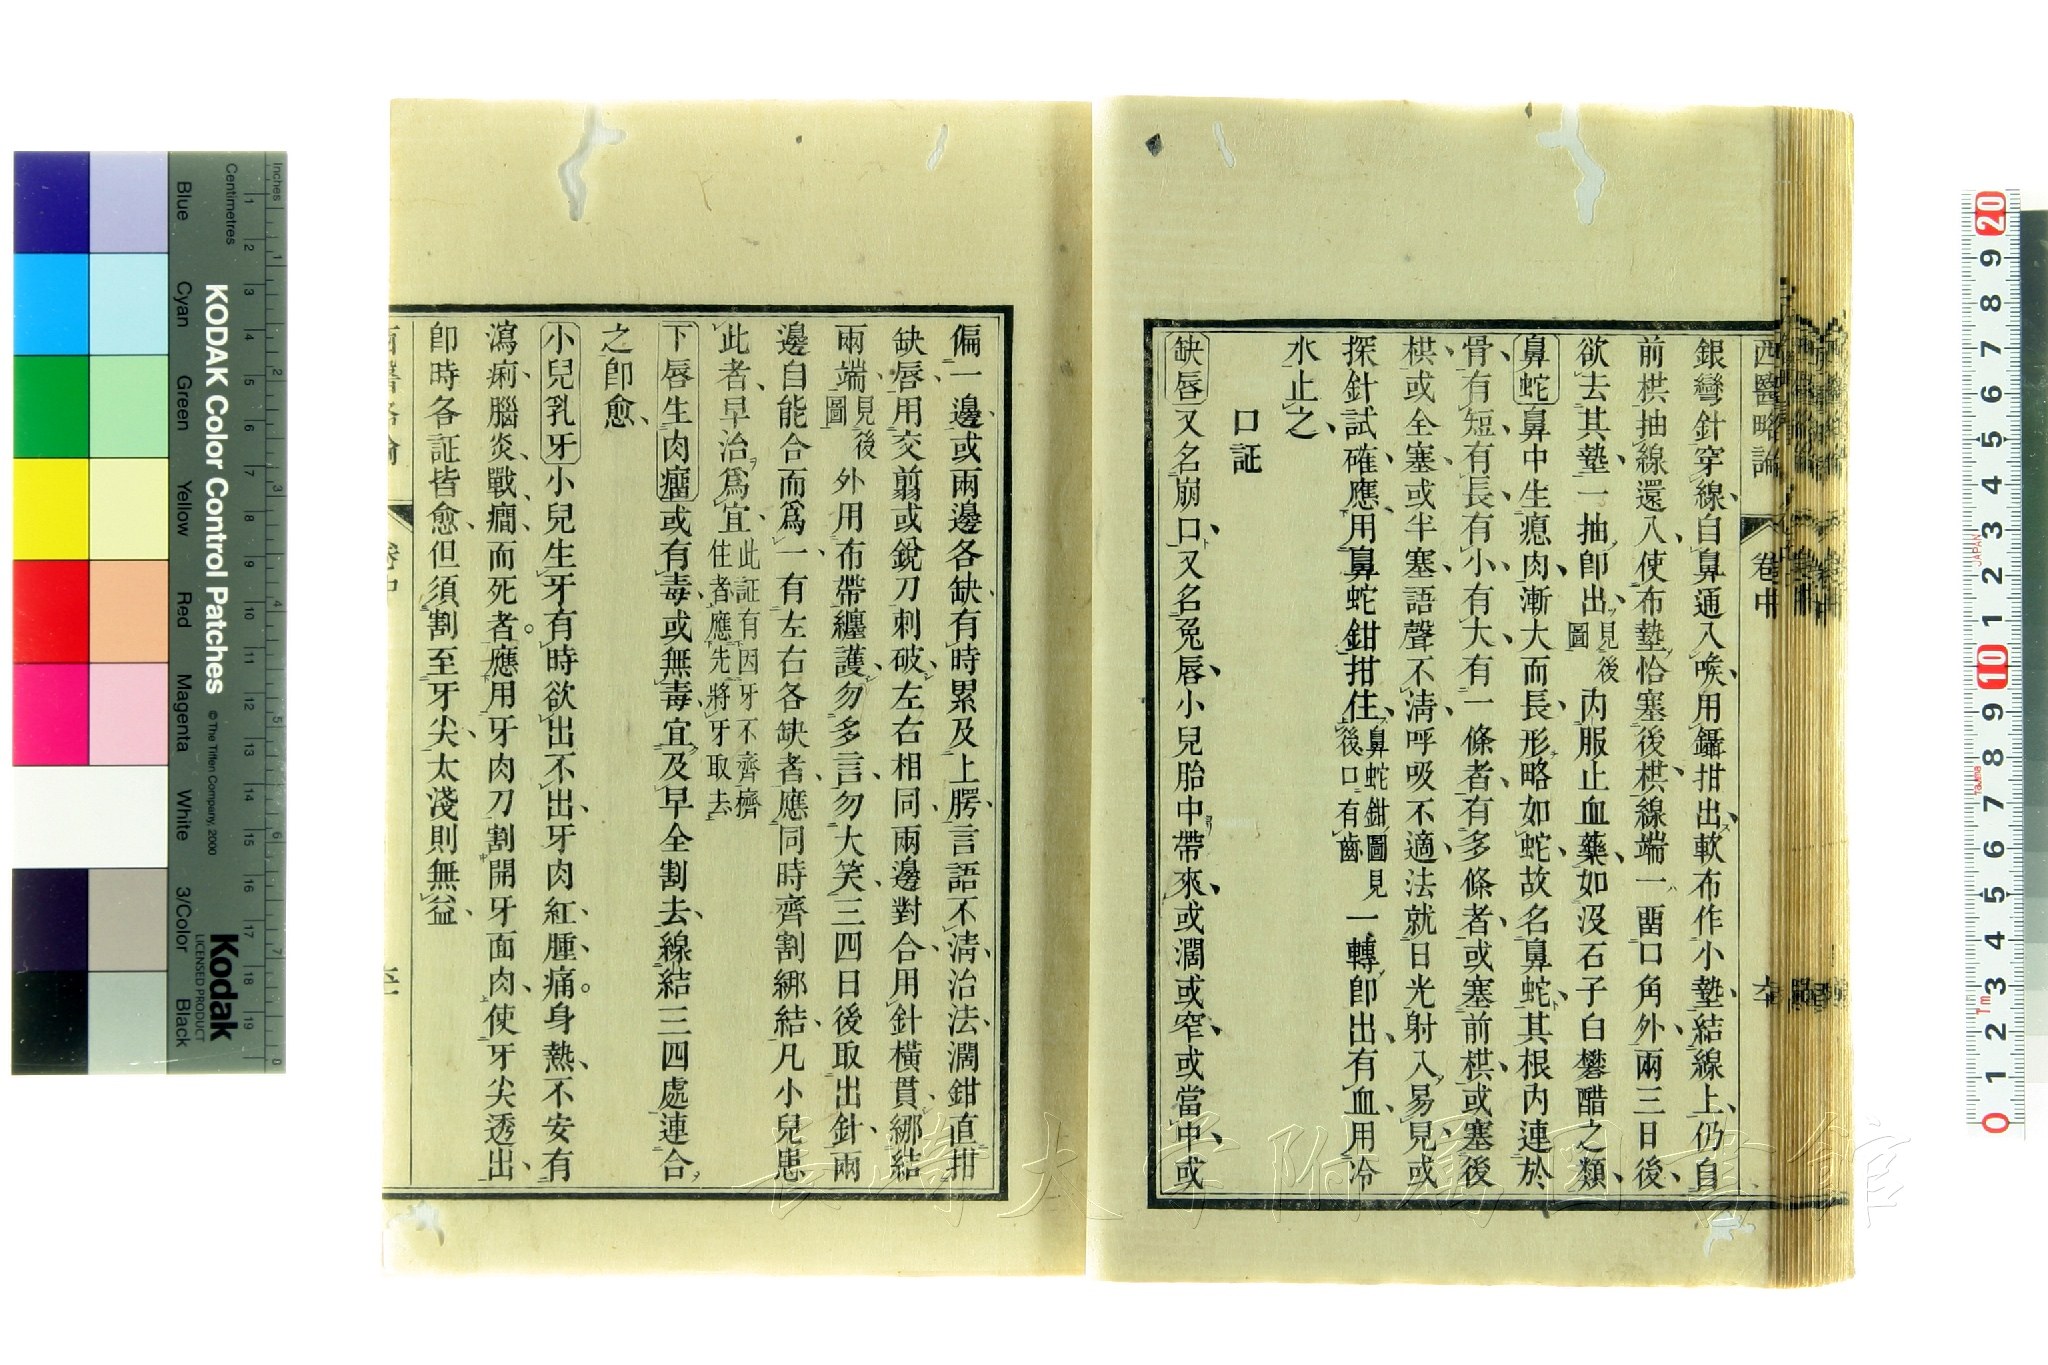 西醫略論 卷中 六十
銀彎針穿線自鼻通入喉用鑷拑出軟布作小墊結線上仍自
前栱抽線還入使布墊恰塞後栱線端一畱口角外兩三日後
欲去其墊一抽卽出見後圖內服止血藥如沒石子白礬醋之類
鼻蛇鼻中生瘜肉漸大而長形略如蛇故名鼻蛇其根內連於
骨有短有長有小有大有一條者有多條者或塞前栱或塞後
栱或全塞或半塞語聲不清呼吸不適法就日光射入易見或
探針試確應用鼻蛇鉗拑住鼻蛇鉗圖見後口有齒一轉卽出有血用冷
水止之
口証
缺唇又名崩口又名兔唇小兒胎中帶來或濶或窄或當中或
偏一邊或兩邊各缺有時累及上腭言語不清治法濶鉗直拑
缺唇用交翦或銳刀刺破左右相同兩邊對合用針橫貫綁結
兩端見後圖外用布帶纏護勿多言勿大笑三四日後取出針兩
邊自能合而爲一有左右各缺者應同時齊割綁結凡小兒患
此者早治爲宜此証有因牙不齊擠住者應先將牙取去
下唇生肉瘤或有毒或無毒宜及早全割去線結三四處連合
之卽愈
小兒乳牙小兒生牙有時欲出不出牙肉紅腫痛。身熱不安有
瀉痢腦炎戰癎而死者。應用牙肉刀割開牙面肉使牙尖透出
卽時各証皆愈但須割至牙尖太淺則無益
KODAK Color Control Patches
© The Tiffen Company, 2000
Kodak
LICENSED PRODUCT
Inches
Centimetres
Blue Cyan Green Yellow Red Magenta White 3/Color Black
長崎大学附属図書館